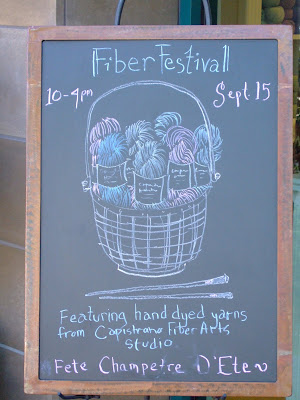 Fiber Festival
10-4pm Sept. 15
Featuring hand dyed yarns
from Capistrano Fiber Arts
Studio
Fete Champetre D'Ete